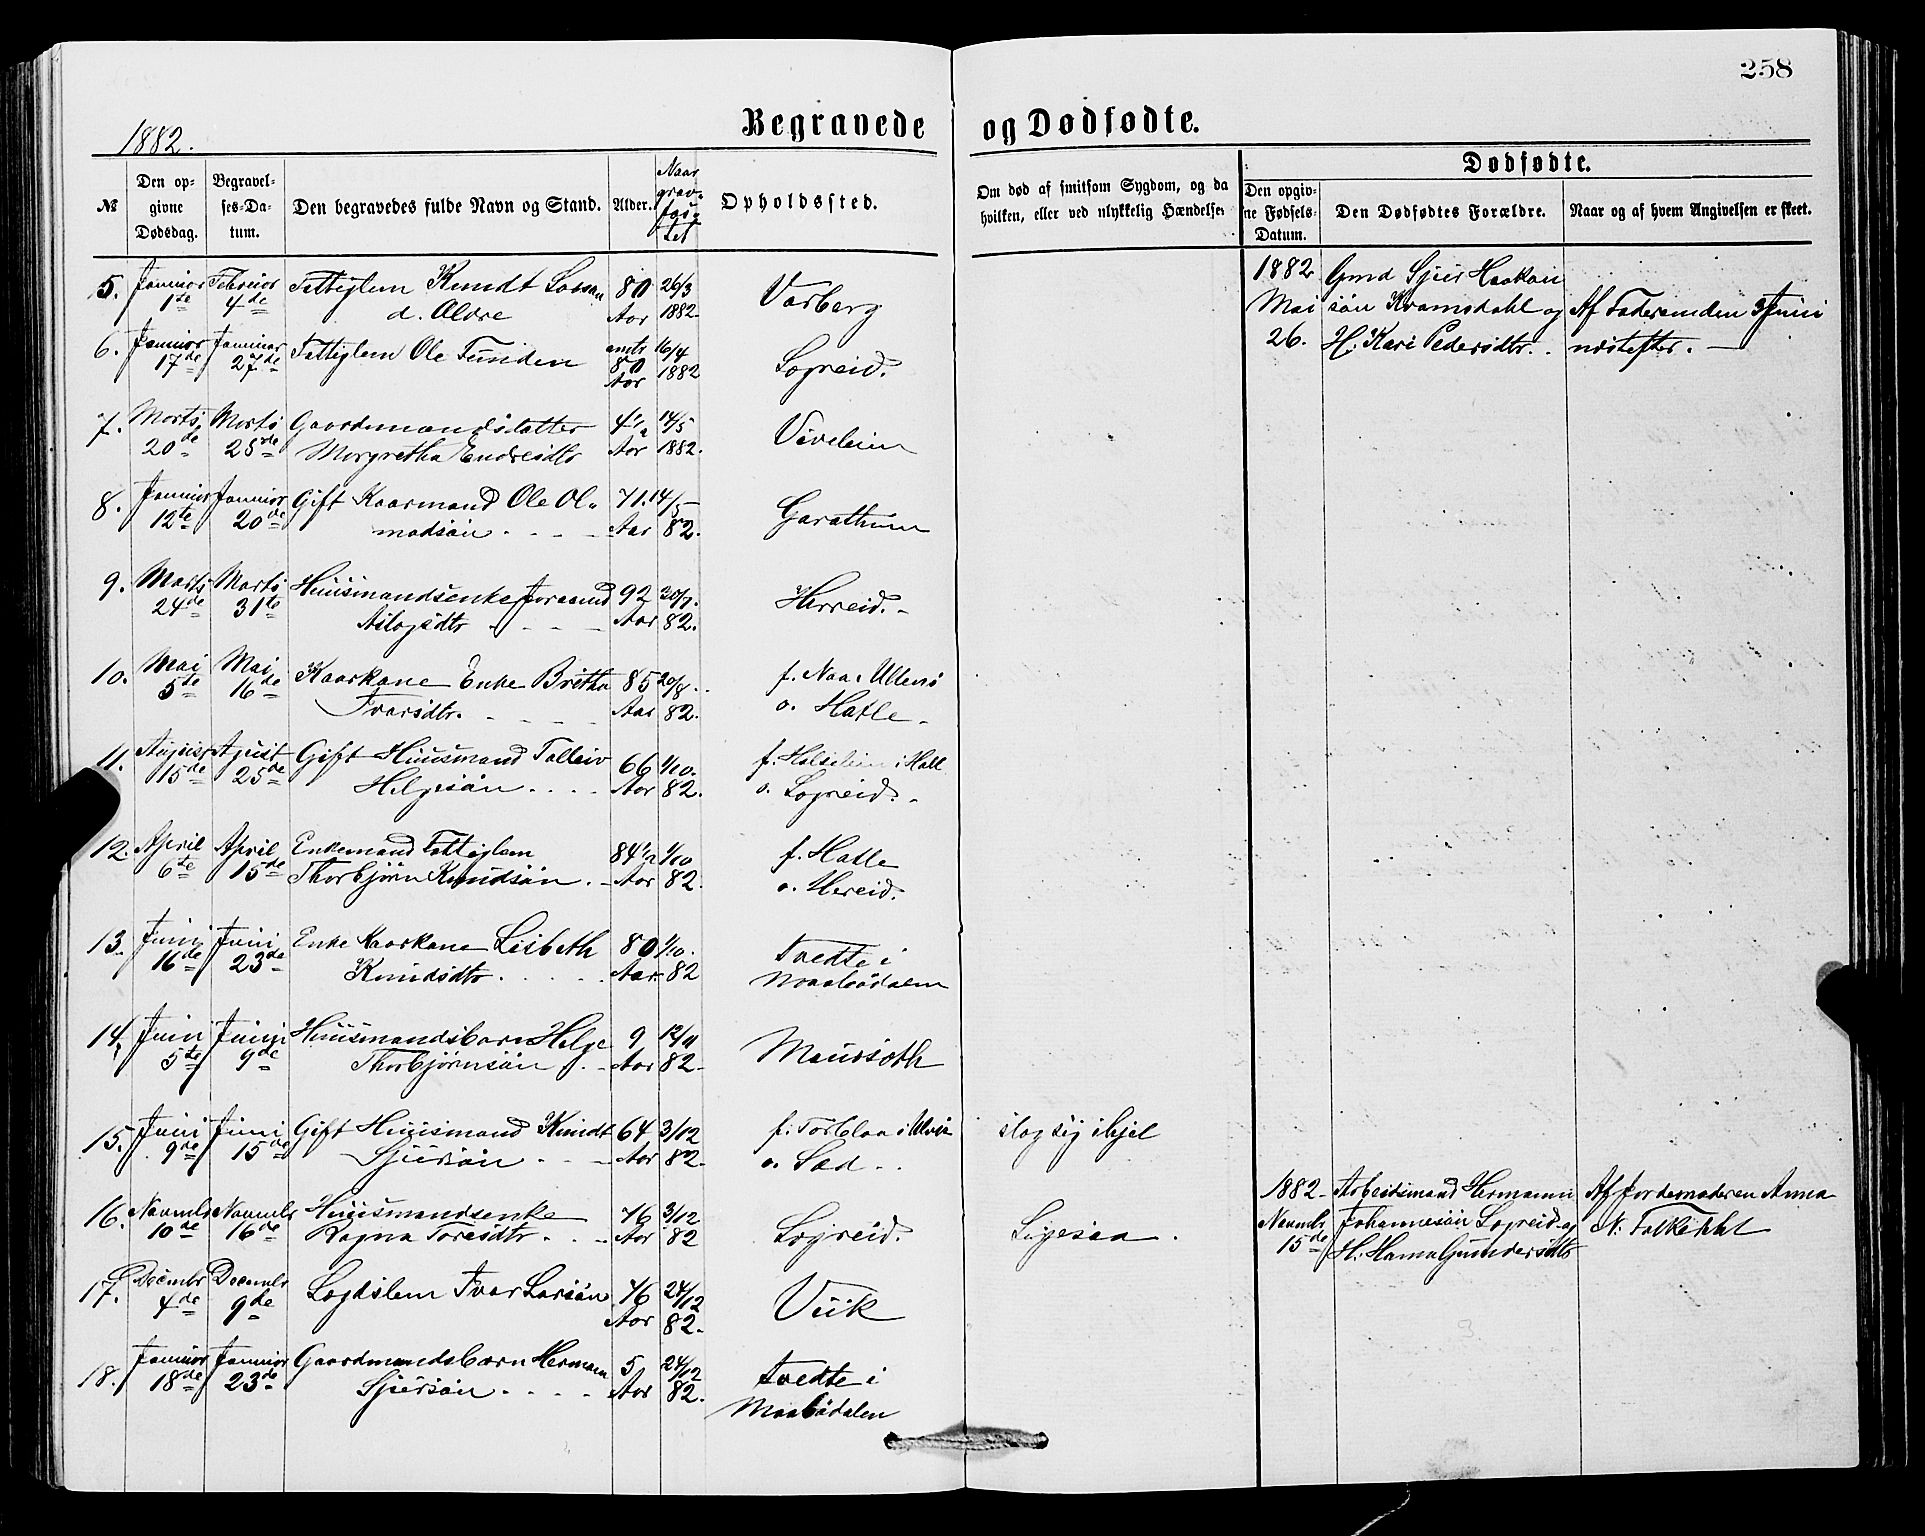 258
1882.
Begravede og Dødfødte.
№
Den opgivne Dødsdag.
Begravelses-Datum.
Den begravedes fulde Navn og Stand.
Alder.
Naar
Opholdssted.
Om død af smitsom Sygdom, og da hvilken, eller ved ulykkelig Hændelse.
Dødfødte.
Den opgivne Fødsels-Datum.
Den Dødfødtes Forældre.
Naar og af hvem Angivelsen er skeet.
5. Januar Februar Fattiglem Knudt 80 26/3
1ste 4de d. Ældre Aar 1882 Varberg
6. Januar Januar Fattiglem Ole Tunden 80 16/4
17de 27de Aar 1882 Legreid.
7. Marts Marts Gaardmandsdatter 4½ 14/5
20de 25de Margretha Endresdtr Aar 1882. Viveleim
8. Januar Januar Gift Kaarmand Ole Ol- 71. 14/5
12te 20de mодsön Aar 82. Garathun
9. Marts Marts Huusmandsenke 92 30/7.
24de 31te Aslagsdtr Aar 82. Herreid.
10. Mai Mai Kaarkone Enke Britha 85 20/8 f. Naa i Ullens
5te 16de Ivarsdtr. Aar 82. o. Hatle
11. August Agust Gift Huusmand Talleiv 66 1/10. f.
15de 25de Helgesön Aar 82. o. Legreid.
12. April April Enkemand Fattiglem 84½ 1/10 f. Hatle
6te 15de Thorbjörn Knudsön Aar 82. o. Hereid.
13. Juni Juni Enke Kaarkone Lisbeth 80 1/10. Tvedte i
16de 23de Knudsdtr Aar 82 Maabödalen
14. Juni Juni Huusmandsbarn Helge 9 12/11
5te 9de Thorbjörnsön Aar 82 Maursæth
15. Juni Juni Gift Huusmand Knudt 64 3/12 f. Torblaa i Ulvik slog sig ihjel
9de 15de Sjursön Aar 82. o. Sæd
16. Novmbr Novmbr Huusmandsenke 76 3/12
10de 16de Ragna Toresdtr Aar 82 Legreid. Ligesaa.
17. Decmbr Decmbr Lægdslem Ivar Larsön 76 24/12
4de 9de Aar 82. Viik
18. Januar Januar Gaardmandsbarn Herman 5 24/12 Tvedte i
18de 23de Sjursön Aar 82. Maabödalen
1882 Gmd Sjur Haakon
Mai sön Kvamsdahl og Af Faderen den 3 Juni
26. H: Kari Pedersdtr. næstefter.
1882 Arbeidsmand Hermann Af Jordemoderen Anna
Novmbr Johannesön Legreid og N.
15de H: Gundersdtr